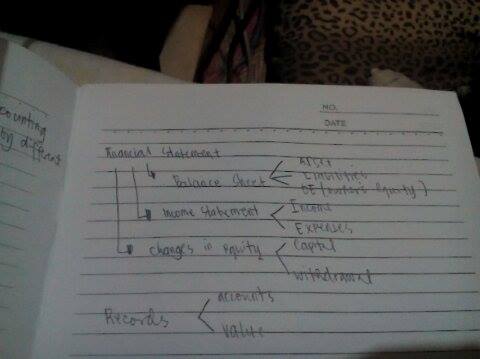 counting
by different
NO.
DATE
Financial Statement
Balance Sheet
Asset
Liabilities
OE (owner's equity)
Income Statement
Income
Expenses
changes in equity
Capital
withdrawal
Records
accounts
value